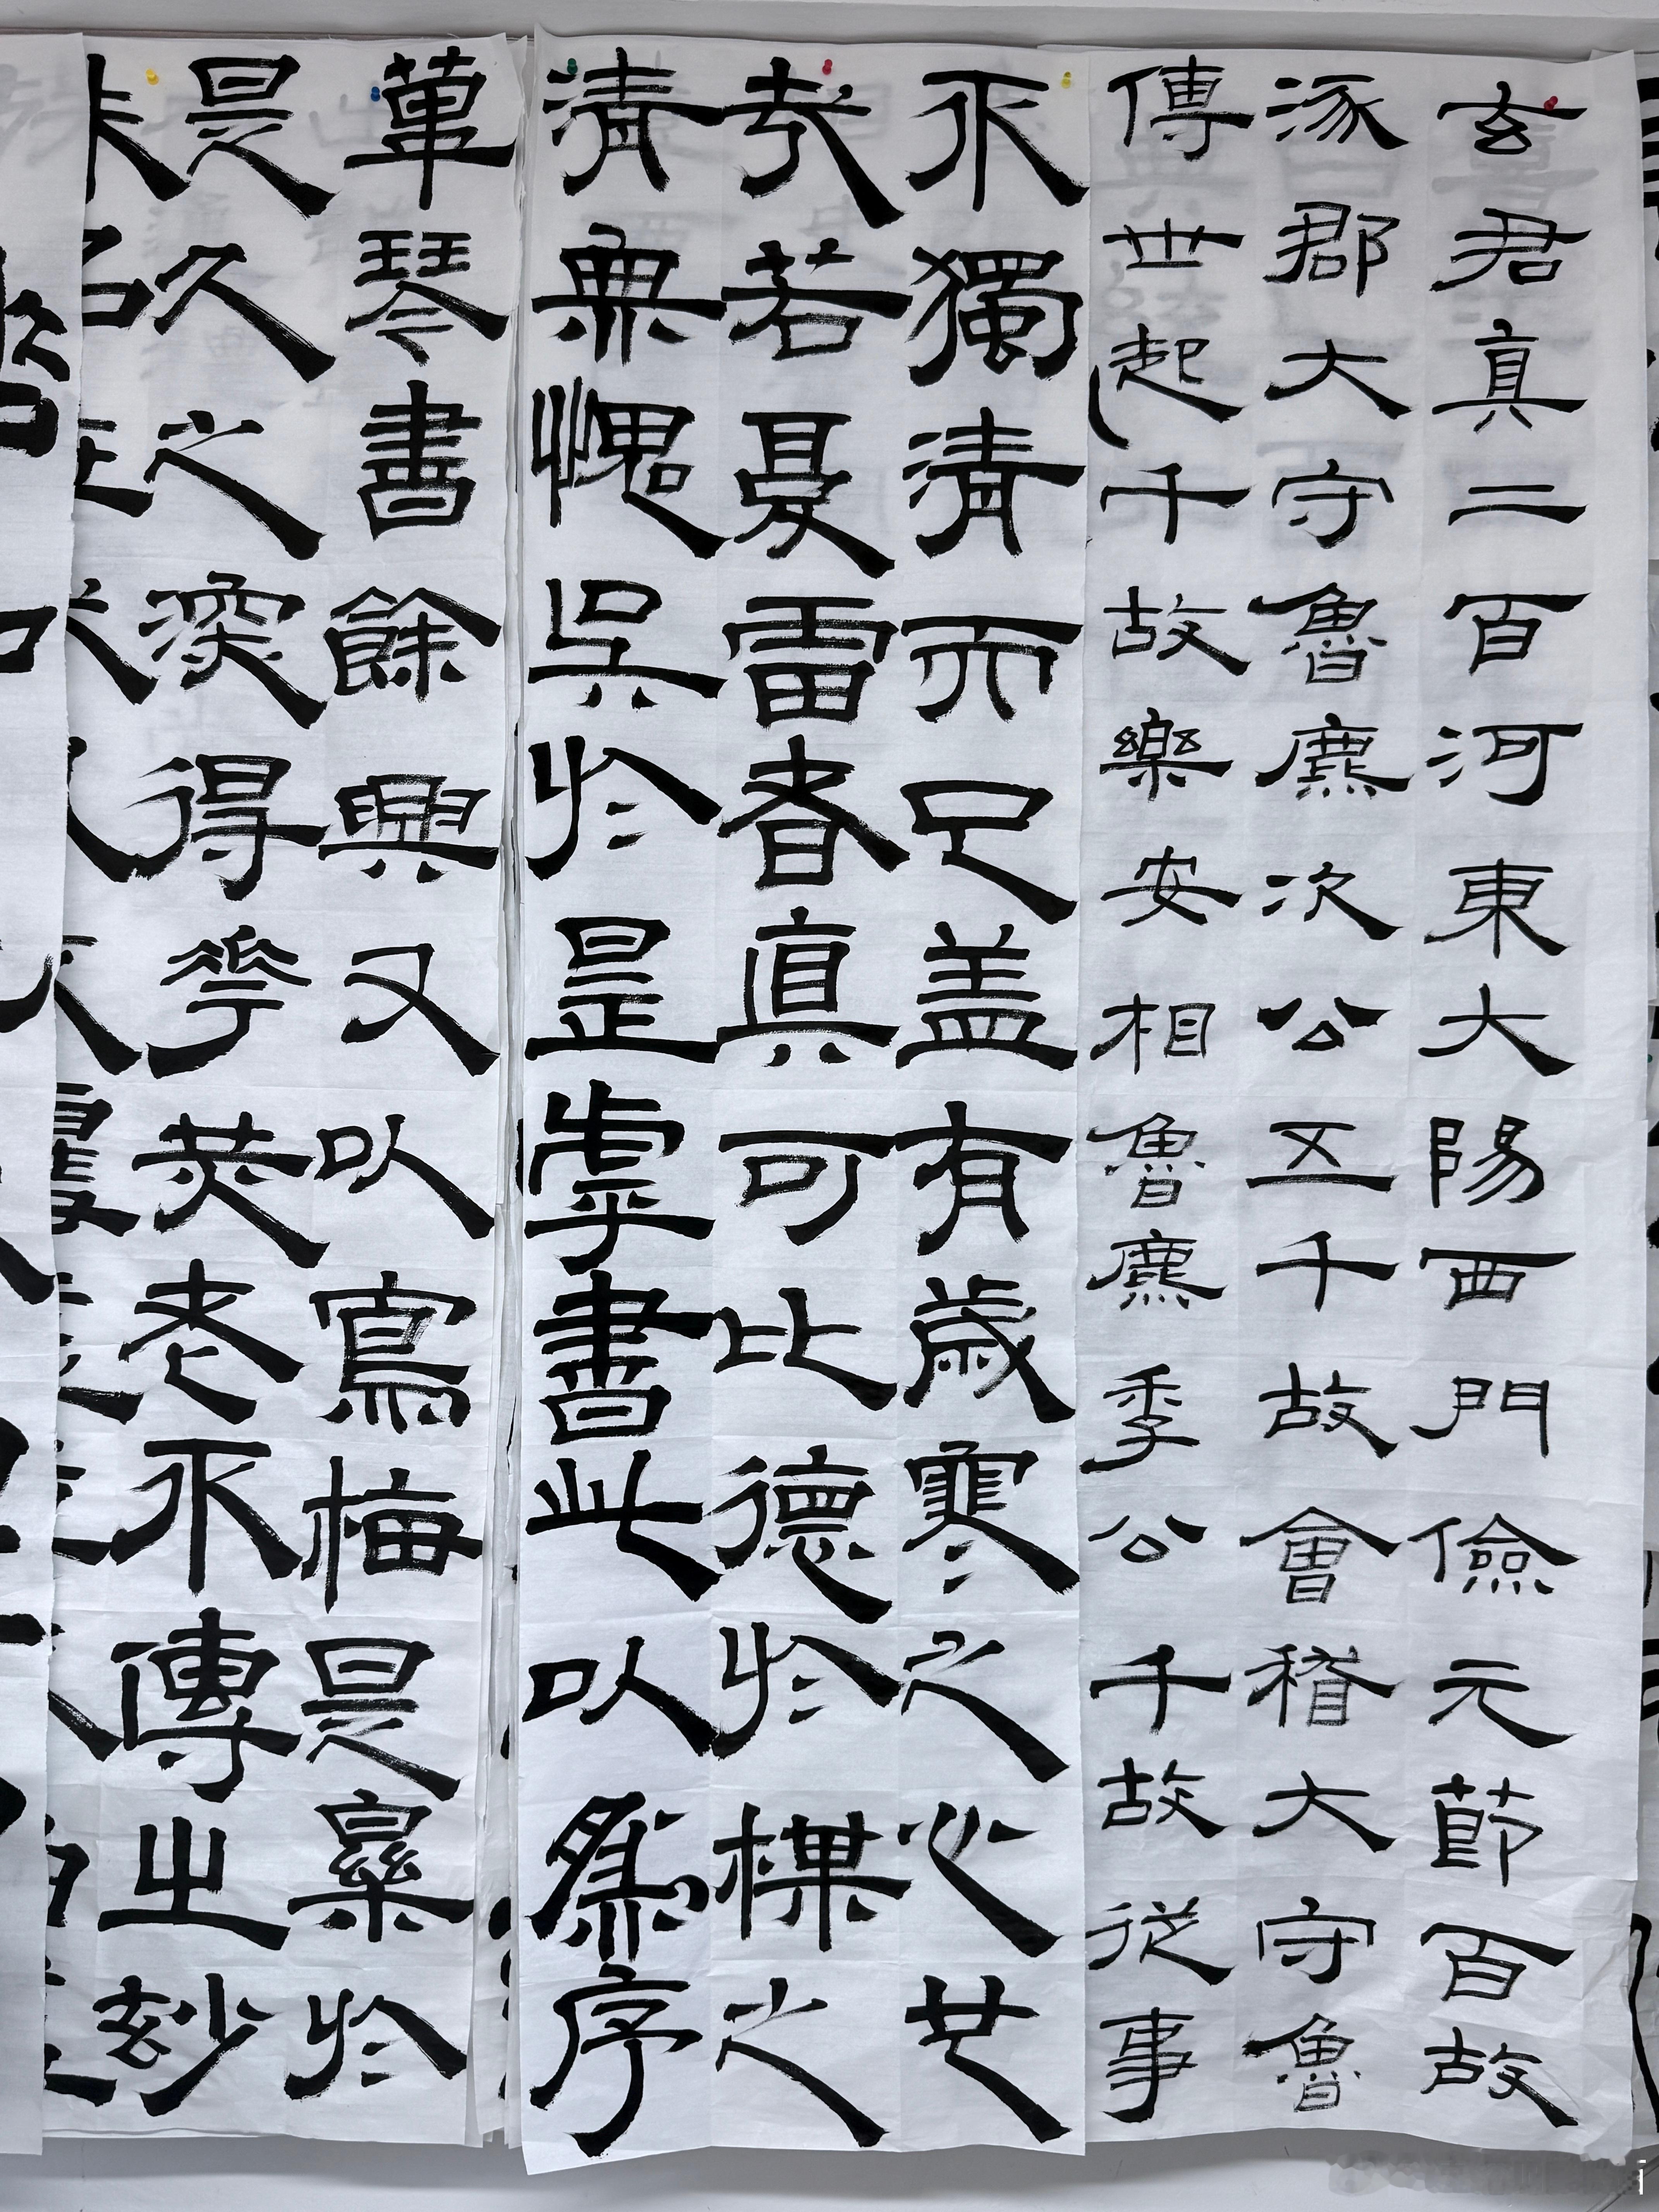 玄君真二百河東大陽西門儉元節百故
涿郡大守魯麃次公五千故會稽大守魯
傳世起千故樂安相魯麃季公千故從事
不獨清而已盖有歲寒之心也
哉若夏雷者真可比德於楳之
清無愧矣於是虖書此以為序
葷琴書餘興又以寫梅是樂於
是久之深得華炗老不傳㞢玅